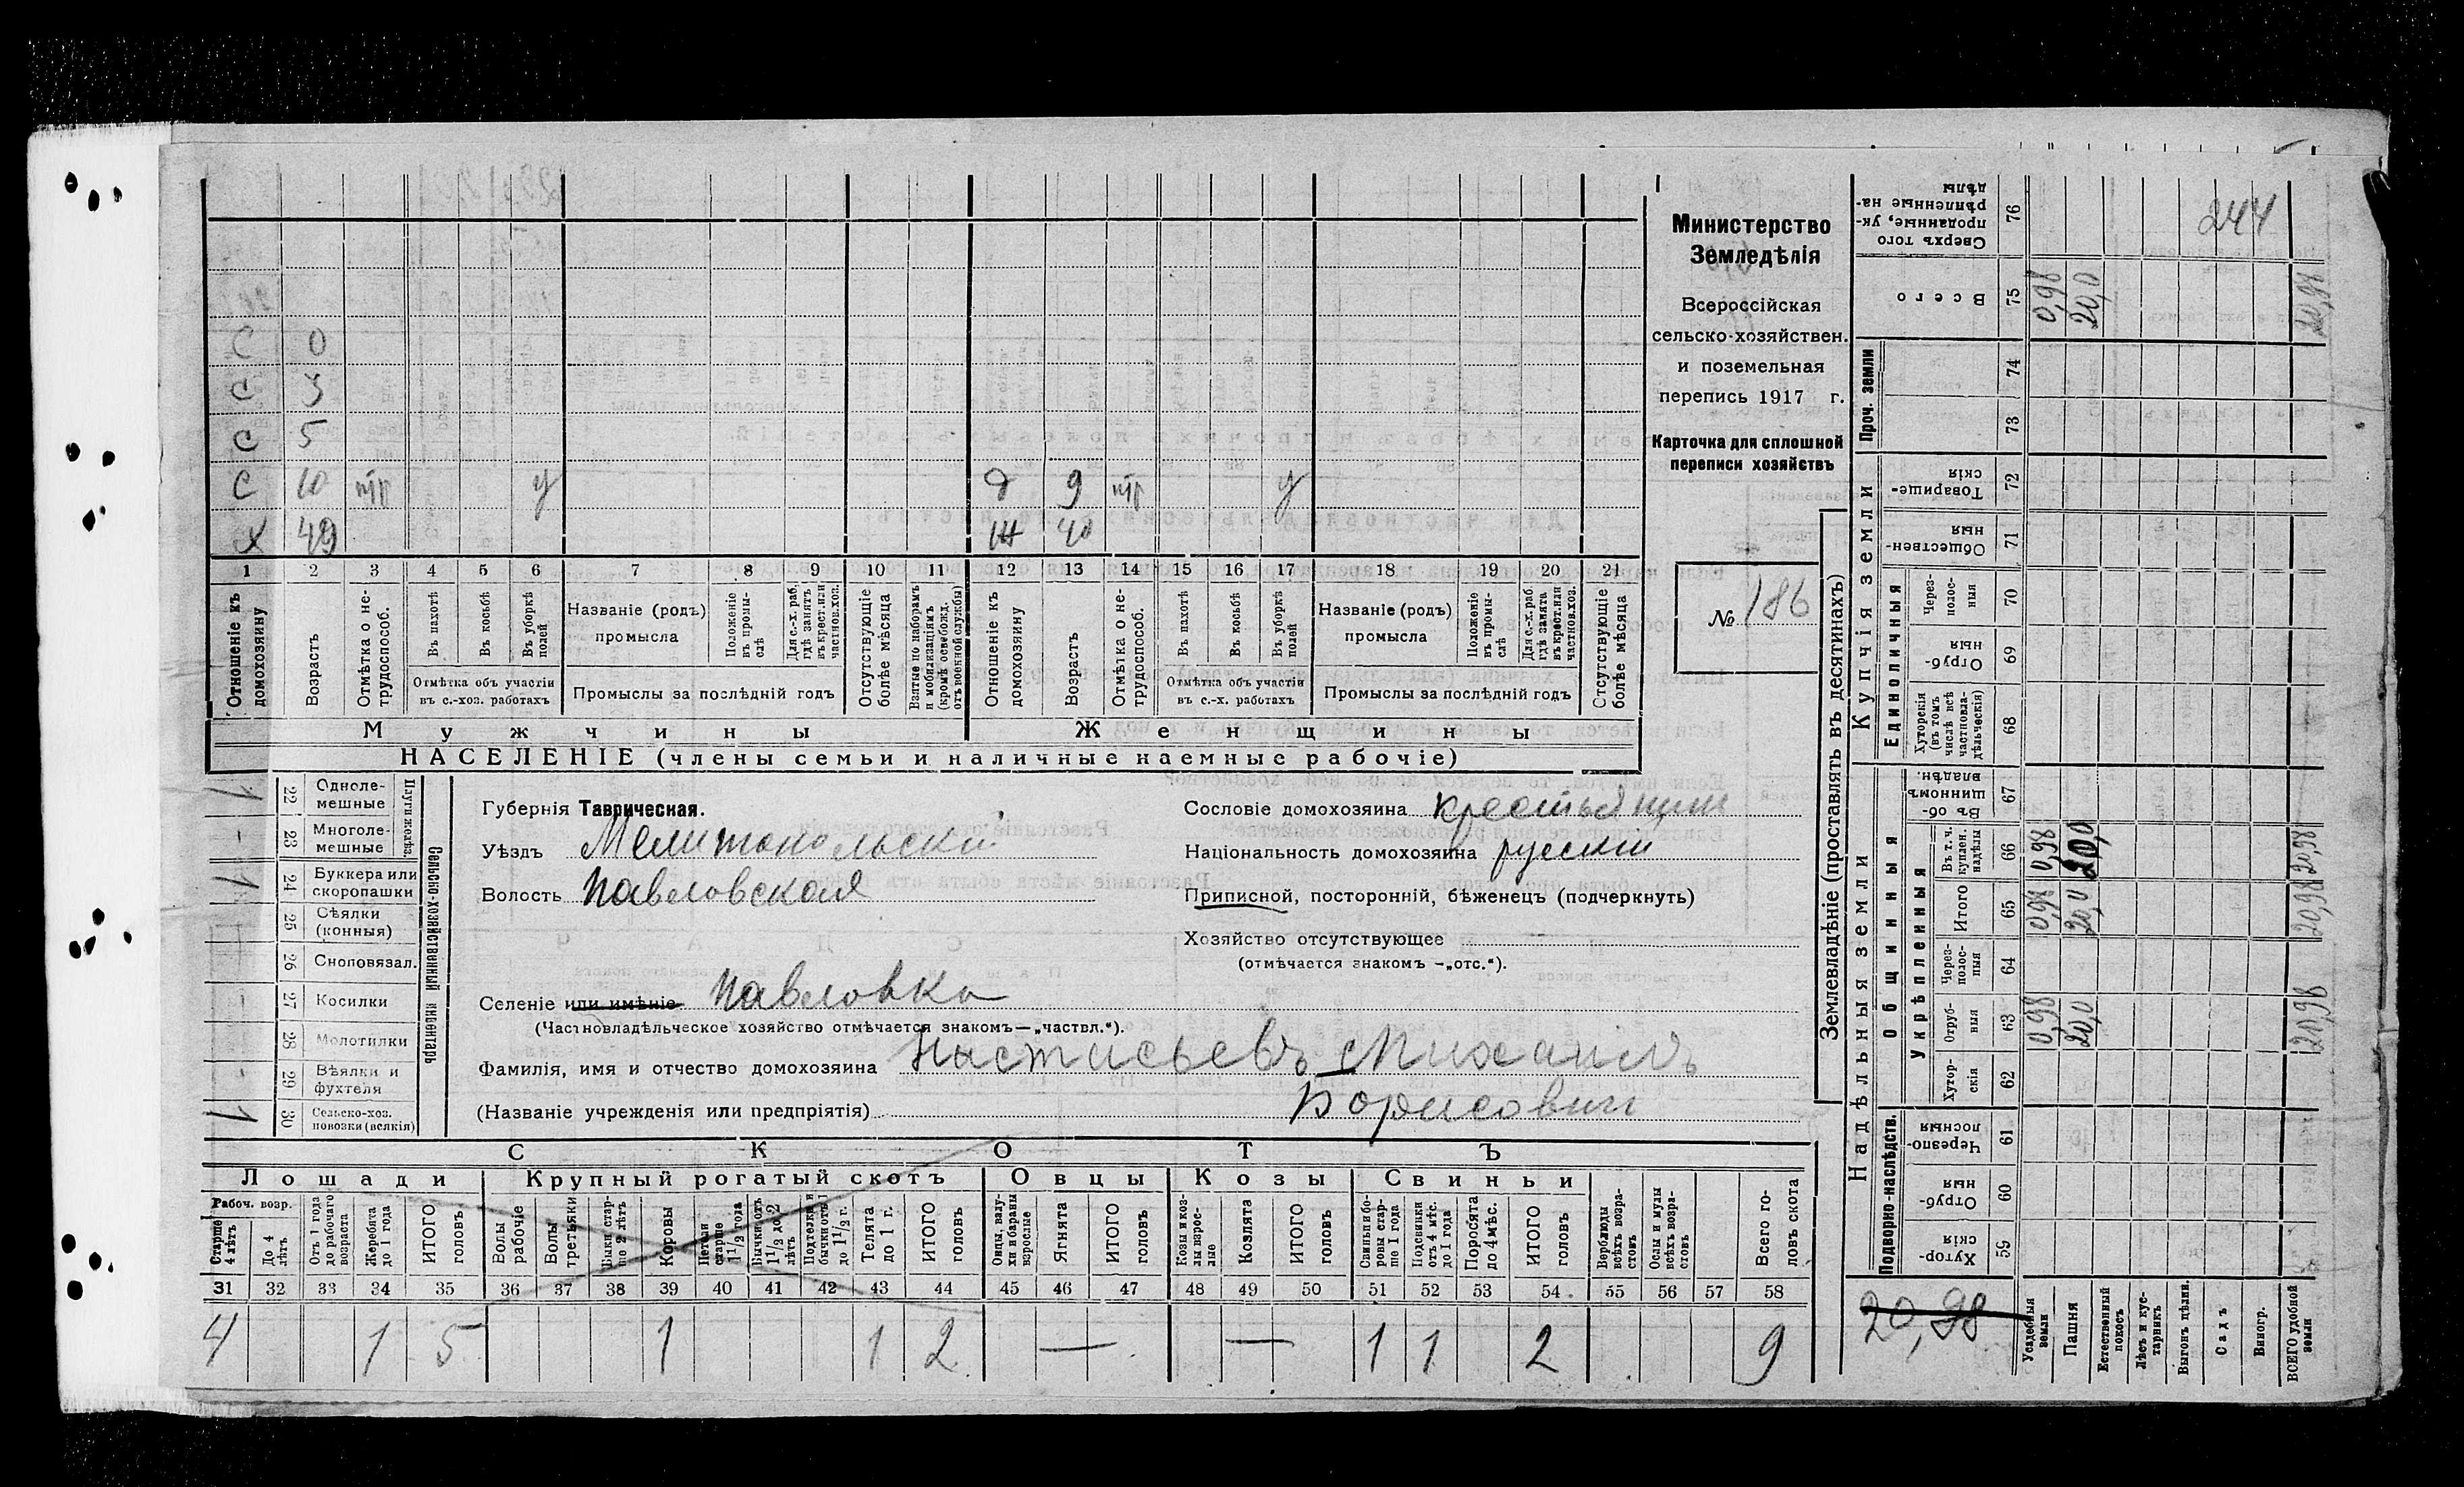 244
Министерство
Земледѣлія
Всероссійская
сельско-хозяйствен.
и поземельная
перепись 1917 г.
Карточка для сплошной
переписи хозяйствъ
№ 186
С 0
С 3
С 5
С 10 тр у д 9 тр у
Х 49 Ж 40
1 2 3 4 5 6 7 8 9 10 11 12 13 14 15 16 17 18 19 20 21
Отношеніе къ домохозяину
Возрастъ
Отмѣтка о не-трудоспособ.
Въ пахотѣ
Въ косьбѣ
Въ уборкѣ полей
Отмѣтка объ участіи
въ с.-хоз. работахъ
Названіе (родъ)
промысла
Положеніе въ промы-слѣ
Для с.-х. раб. гдѣ занятъ въ крест. или частнов. хоз.
Промыслы за послѣдній годъ
Отсутствующіе болѣе мѣсяца
Взятые по наборамъ и мобилизаціямъ (кромѣ освобожд. отъ военной службы)
Отношеніе къ домохозяину
Возрастъ
Отмѣтка о не-трудоспособ.
Въ пахотѣ
Въ косьбѣ
Въ уборкѣ полей
Отмѣтка объ участіи
въ с.-х. работахъ
Названіе (родъ)
промысла
Положеніе въ промы-слѣ
Для с.-х. раб. гдѣ занята въ крест. или частнов. хоз.
Промыслы за послѣдній годъ
Отсутствующіе болѣе мѣсяца
Мужчины Женщины
НАСЕЛЕНІЕ (члены семьи и наличные наемные рабочіе)
Сельско-хозяйственный инвентарь
Плуги желѣз.
1 22 Одноле-мешные
- 23 Многоле-мешные
1 24 Буккера или скоропашки
- 25 Сѣялки (конныя)
26 Сноповязал.
- 27 Косилки
28 Молотилки
- 29 Вѣялки и фухтеля
1 30 Сельско-хоз. повозки (всякія)
Губернія Таврическая.
Уѣздъ Мелитопольскій
Волость Павловская
Сословіе домохозяина крестьянин
Національность домохозяина русскій
Приписной, посторонній, бѣженецъ (подчеркнуть)
Хозяйство отсутствующее
(отмѣчается знакомъ -„отс.“).
Селеніе или имѣніе Павловка
(Частновладѣльческое хозяйство отмѣчается знакомъ—„частвл.“).
Фамилія, имя и отчество домохозяина Настасьевъ Михаилъ
(Названіе учрежденія или предпріятія) Борисович
СКОТЪ
Лошади Крупный рогатый скотъ Овцы Козы Свиньи
Рабоч. возр.
Старше 4 лѣтъ
До 4 лѣтъ
Отъ 1 года до рабочаго возраста
Жеребята до 1 года
ИТОГО головъ
Волы рабочіе
Волы третьяки
Быки стар-ше 2 лѣтъ
Коровы
Нетели старше 1 1/2 года
Бычки отъ 1 1/2 до 2 лѣтъ
Подтелки и бычки отъ 1 до 1 1/2 г.
Телята до 1 г.
ИТОГО головъ
Овцы, валу-хи и бараны взрослые
Ягнята
ИТОГО головъ
Козы и коз-лы взрос-лые
Козлята
ИТОГО головъ
Свиньи и бо-ровы стар-ше 1 года
Подсвинки отъ 4 мѣс. до 1 года
Поросята до 4 мѣс.
ИТОГО головъ
Верблюды всѣхъ возра-стовъ
Ослы и мулы всѣхъ возра-стовъ
Всего го-ловъ скота
31 32 33 34 35 36 37 38 39 40 41 42 43 44 45 46 47 48 49 50 51 52 53 54 55 56 57 58
4 1 5 1 1 2 — — 1 1 2 9
Землевладѣніе (проставлять въ десятинахъ)
Надѣльныя земли
Купчія земли
Проч. земли
Подворно-наслѣдств.
Общинныя
Укрѣпленныя
Единоличныя
Сверхъ того проданные, ук-рѣпленные на-дѣлы 76
Всего 75 0,98 20,0 20,98
74
73
Товарище-скія 72
Обществен-ныя 71
Через-полос-ныя 70
Отруб-ныя 69
Хуторскія (въ томъ числѣ всѣ частновла-дѣльческія) 68
Въ об-щинномъ владѣн. 67
Въ т. ч. куплен. надѣлы 66 0,98 20,0 20,98
Итого 65 0,98 20,0 20,98
Через-полос-ныя 64
Отруб-ныя 63 0,98 20,0 20,98
Хутор-скія 62
Черезпо-лосныя 61
Отруб-ныя 60
Хутор-скія 59
20,98
Усадебныя земли
Пашня
Естественный покосъ
Лѣсъ и кус-тарникъ
Выгонъ цѣлин.
Садъ
Виногр.
ВСЕГО удобной земли